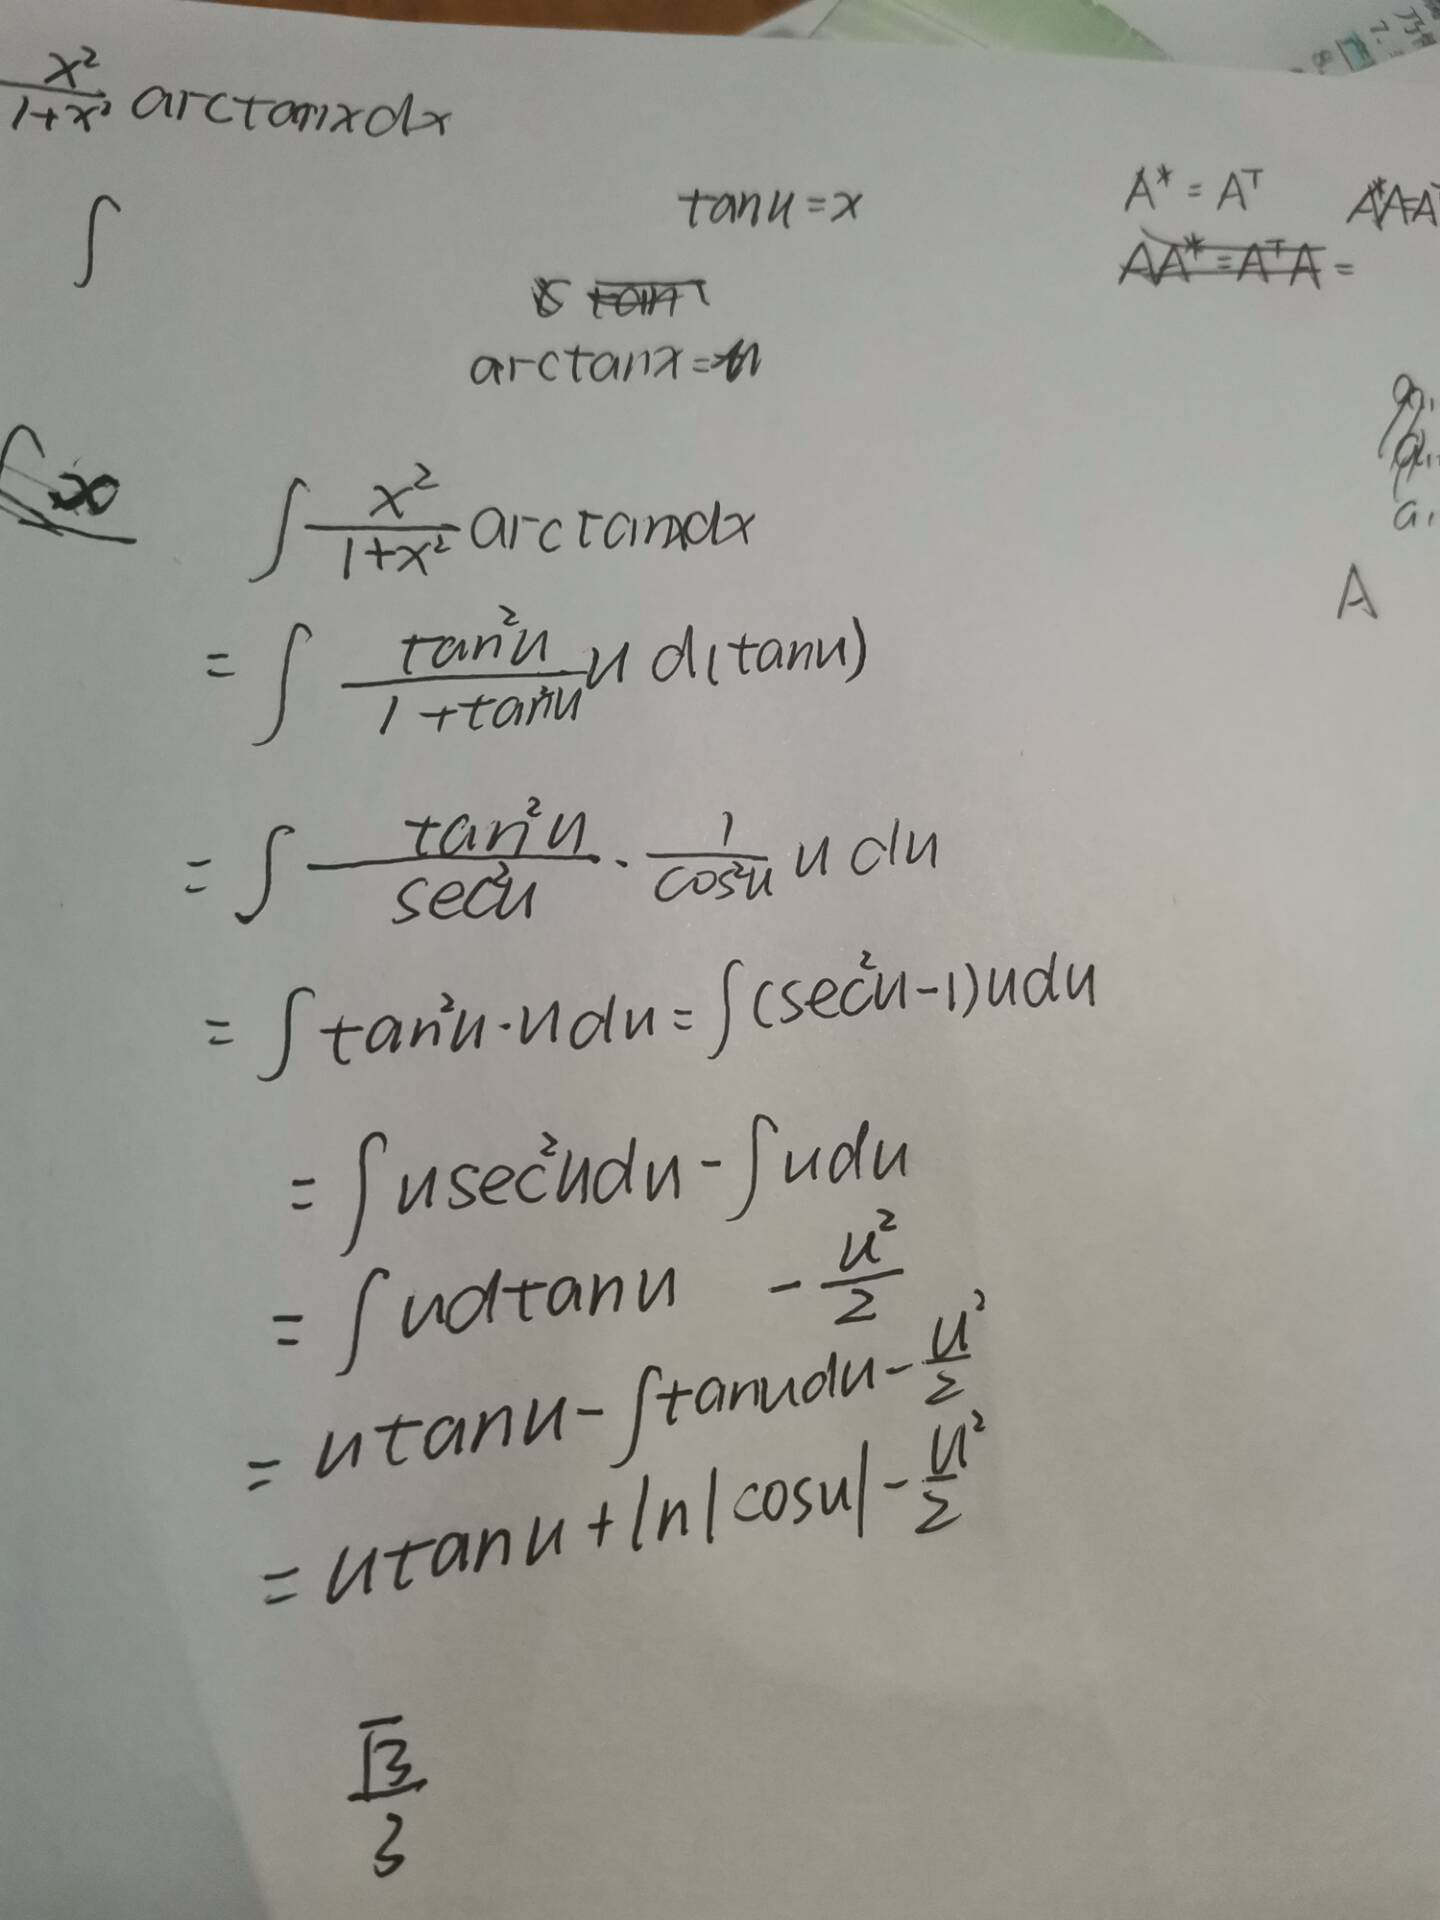 x²/(1+x²) arctanxdx
∫
tanu=x
arctanx=u
A*=Aᵀ
AA*=AᵀA=
A*A=Aᵀ
A
∫ x²/(1+x²) arctanxdx
=∫ tan²u/(1+tan²u) u d(tanu)
=∫ tan²u/sec²u · 1/cos²u u du
=∫tan²u·udu=∫(sec²u-1)udu
=∫usec²udu-∫udu
=∫udtanu - u²/2
=utanu-∫tanudu-u²/2
=utanu+ln|cosu|-u²/2
√3/3